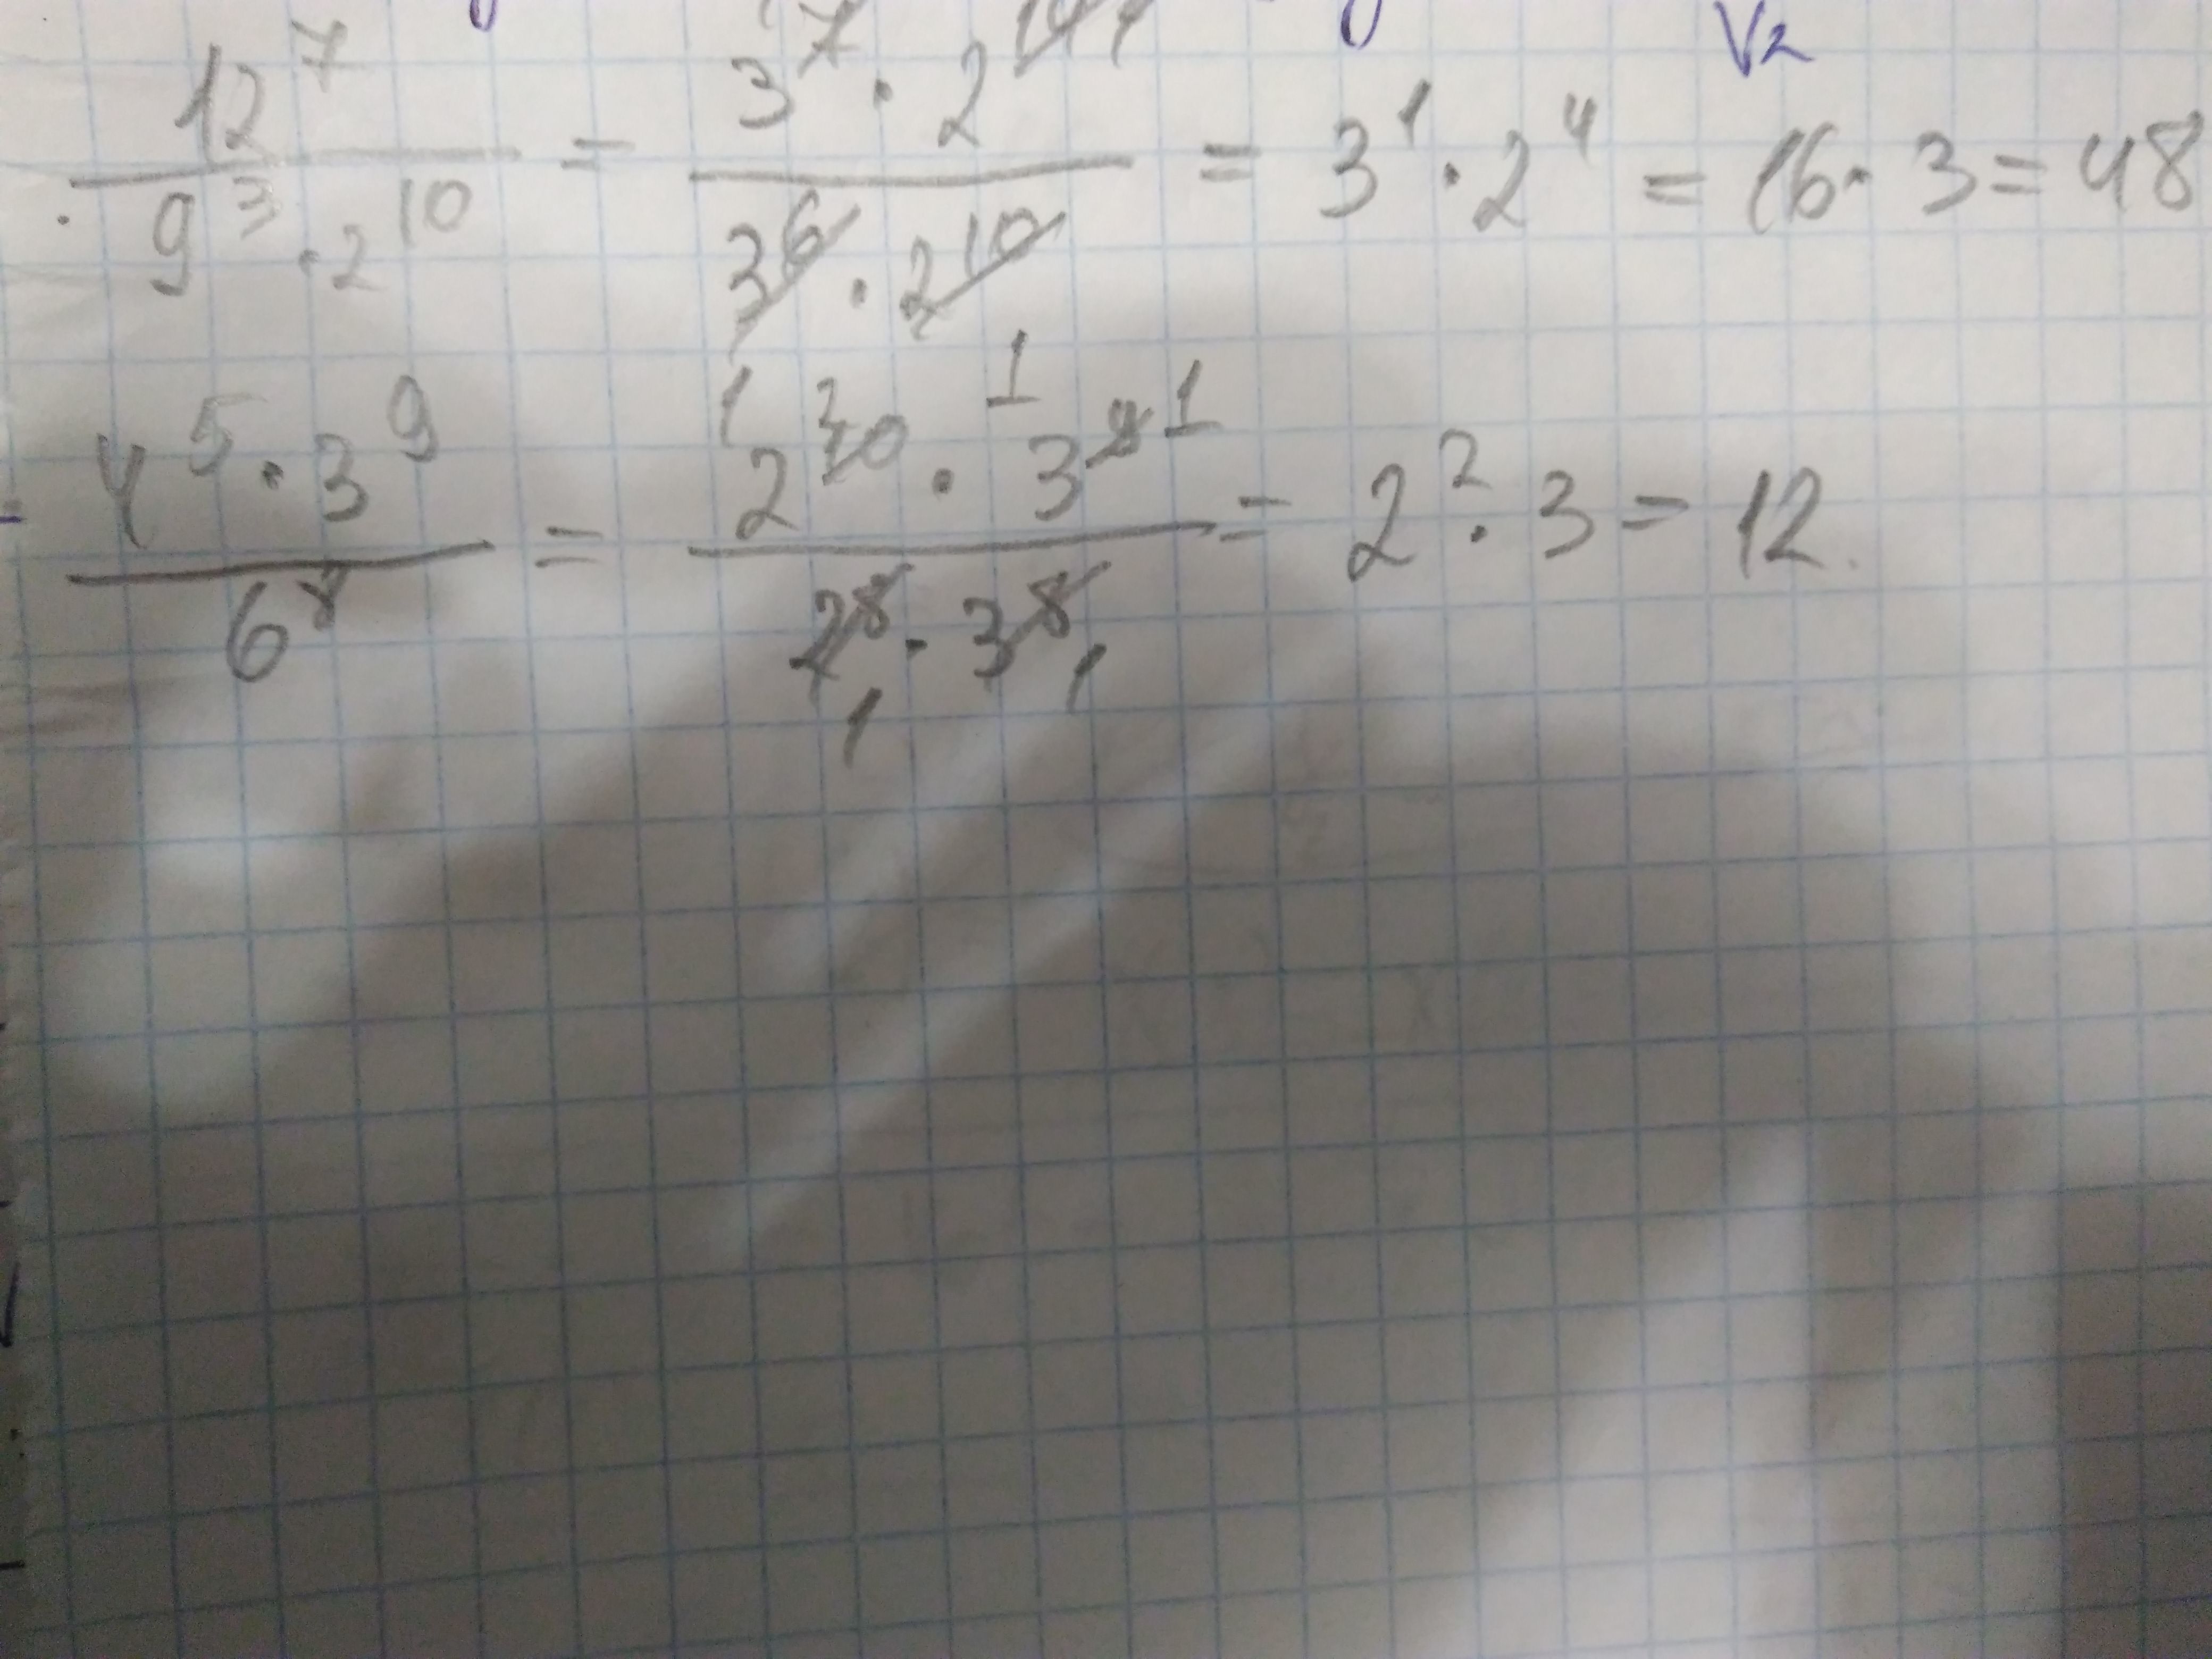 12^7 / (9^3 · 2^10) = (3^7 · 2^14) / (3^6 · 2^10) = 3^1 · 2^4 = 16 · 3 = 48
(4^5 · 3^9) / 6^8 = (2^10 · 3^9) / (2^8 · 3^8) = 2^2 · 3 = 12.